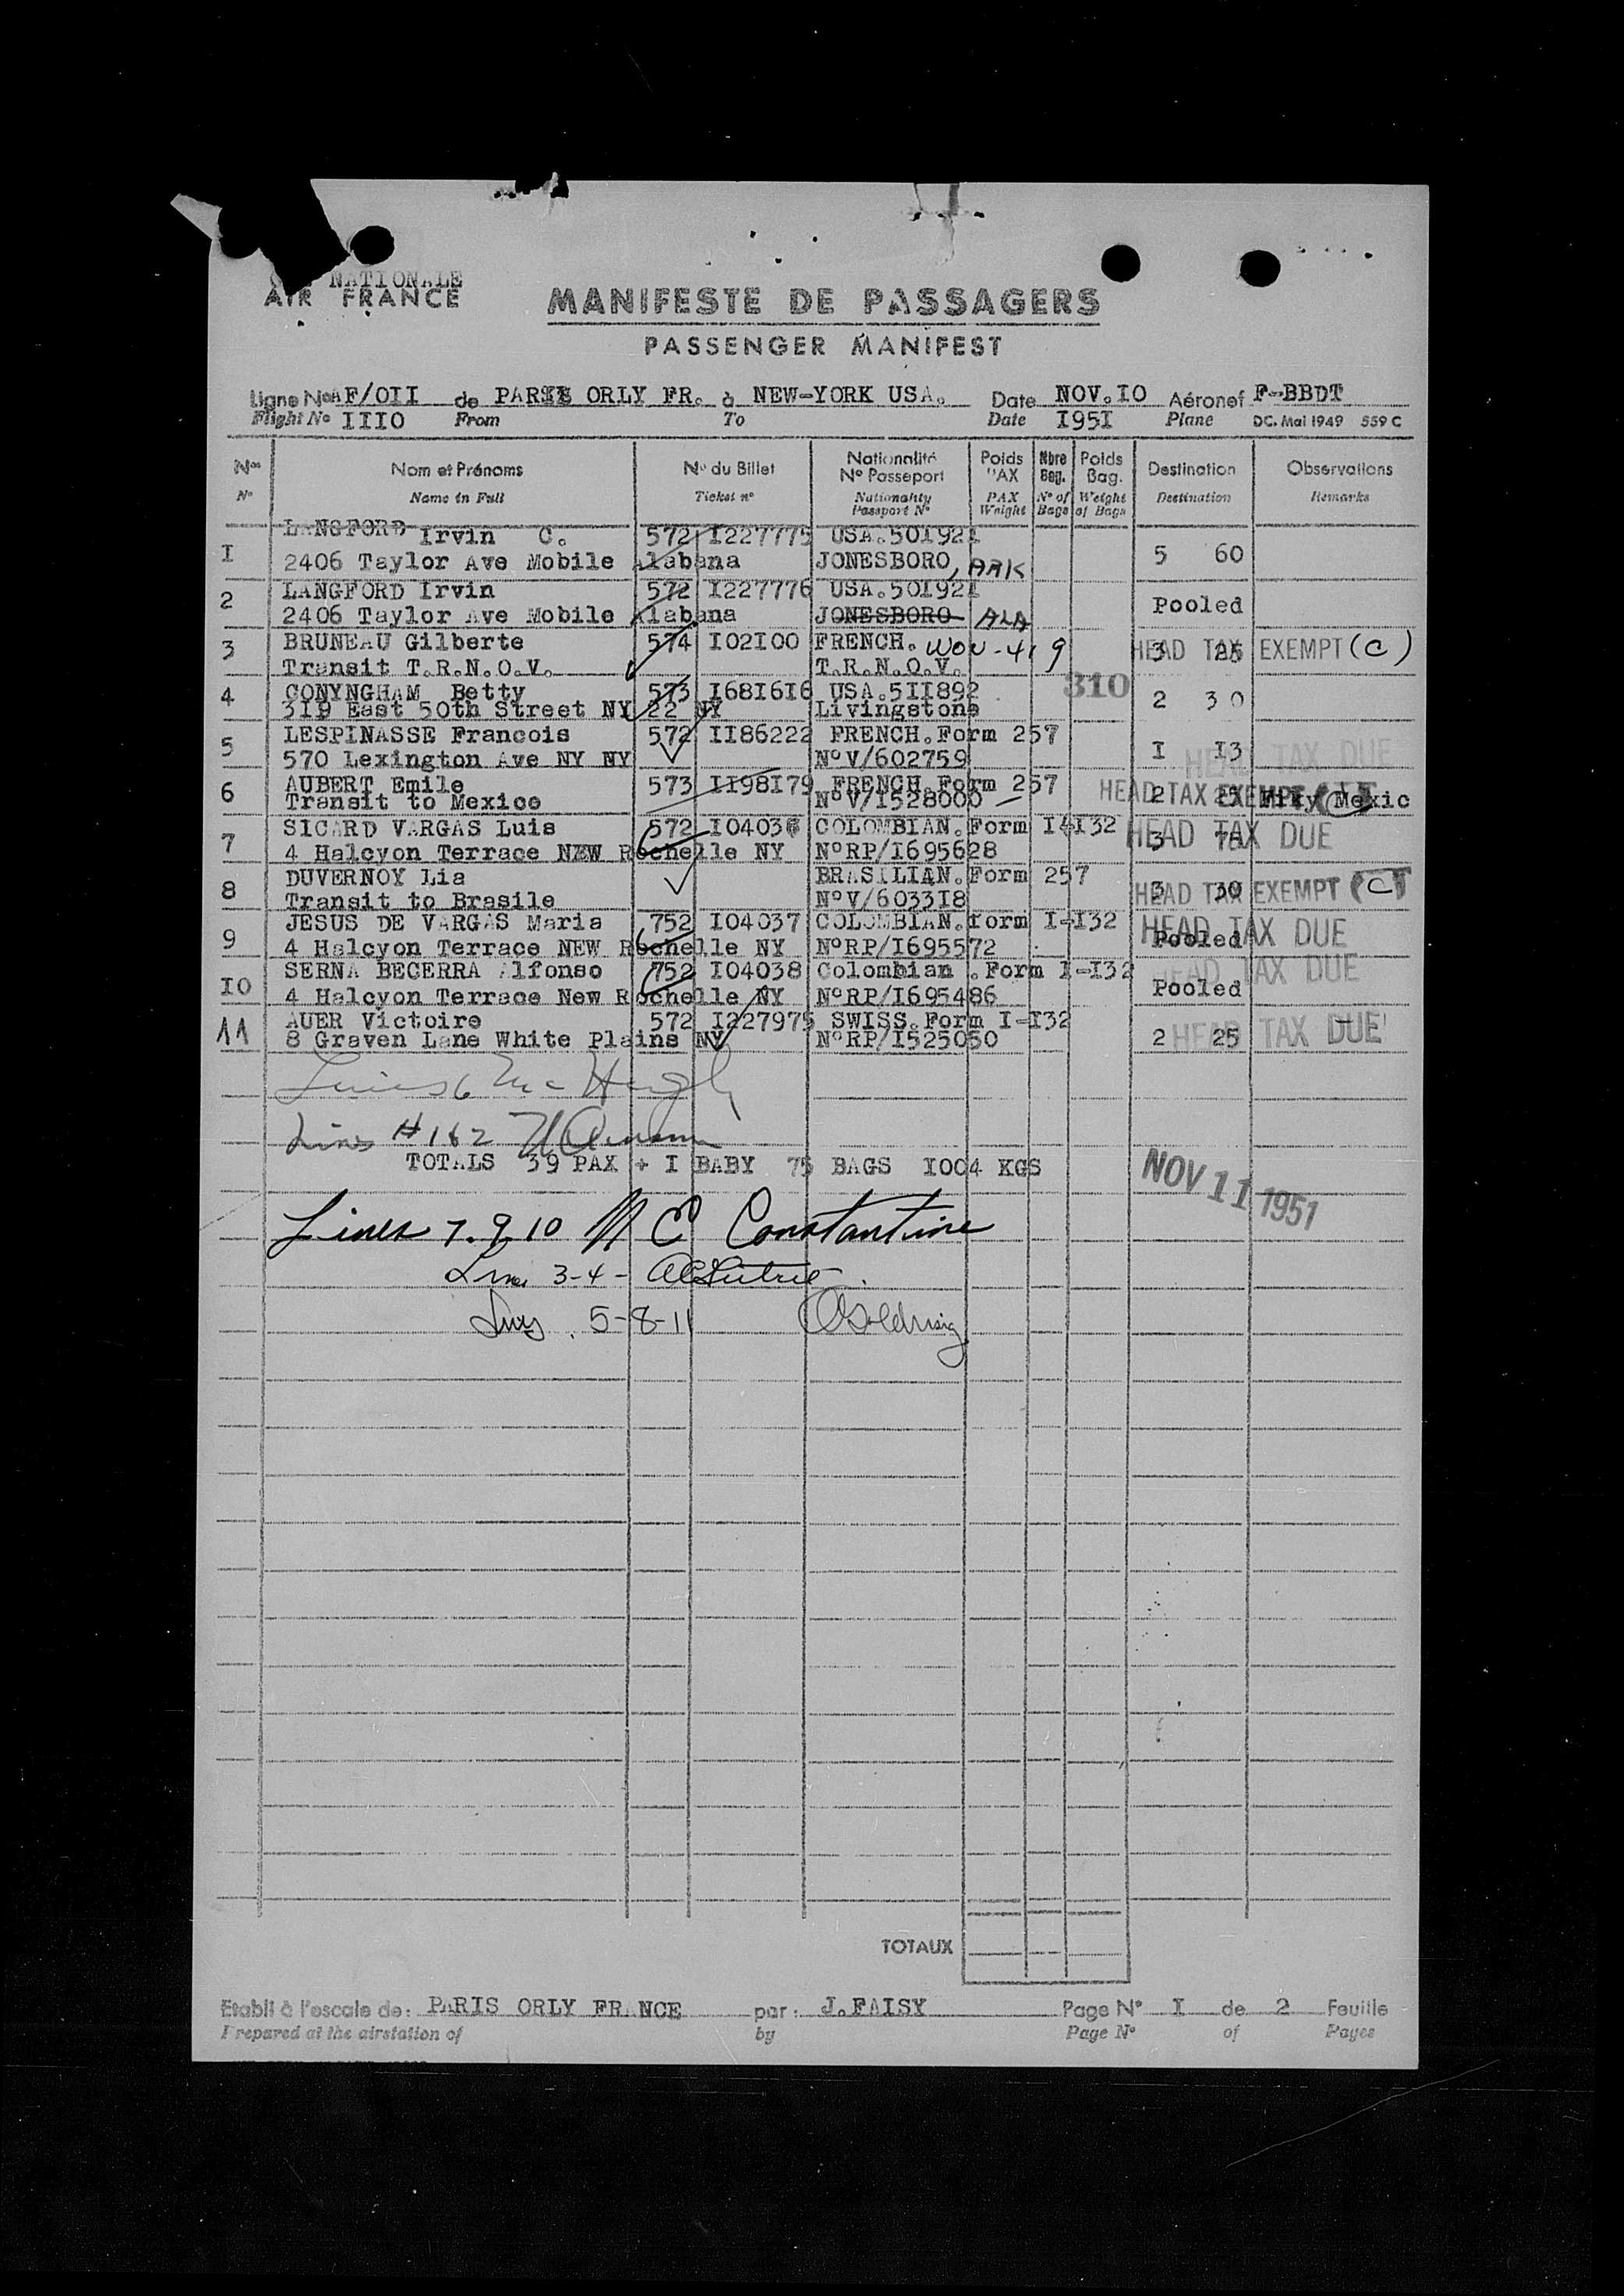 NATIONALE
AIR FRANCE
MANIFESTE DE PASSAGERS
PASSENGER MANIFEST
Ligne No AF/OII de PARIS ORLY FR. à NEW-YORK USA. Date NOV.IO Aéronef F-BBDT
Flight No IIIO From To Date I95I Plane DC. Mai 1949 559 C
Nos Nom et Prénoms No du Billet Nationalité No Passeport Poids PAX Nbre Bag. Poids Bag. Destination Observations
No Name in Full Ticket no Nationality Passport No PAX Weight No of Bags Weight of Bags Destination Remarks
I LANGFORD Irvin C. 572 I227775 USA.50I92I
2406 Taylor Ave Mobile Alabana JONESBORO, ARK 5 60
2 LANGFORD Irvin 572 I227776 USA.50I92I
2406 Taylor Ave Mobile Alabana JONESBORO ALA Pooled
3 BRUNEAU Gilberte 574 I02I00 FRENCH. WOU-419 3 25 HEAD TAX EXEMPT (C)
Transit T.R.N.O.V. T.R.N.O.V.
310
4 CONYNGHAM Betty 573 I68I6I6 USA.5II892 2 30
319 East 50th Street NY 22 NY Livingstone
5 LESPINASSE Francois 572 II86222 FRENCH.Form 257
570 Lexington Ave NY NY NoV/602759 I I3 HEAD TAX DUE
6 AUBERT Emile 573 II98I79 FRENCH.Form 257
Transit to Mexico NoV/I528000 HEAD TAX EXEMPT 2 25 Mexic
7 SICARD VARGAS Luis 572 I04036 COLOMBIAN.Form I-I32 HEAD TAX DUE
4 Halcyon Terrace NEW Rochelle NY NoRP/I695628 3
8 DUVERNOY Lia BRASILIAN.Form 257
Transit to Brasile NoV/6033I8 30 HEAD TAX EXEMPT (C)
9 JESUS DE VARGAS Maria 752 I04037 COLOMBIAN.form I-I32 HEAD TAX DUE
4 Halcyon Terrace NEW Rochelle NY NoRP/I695572 Pooled
IO SERNA BECERRA Alfonso 752 I04038 Colombian .Form I-I32 HEAD TAX DUE
4 Halcyon Terrace New Rochelle NY NoRP/I695486 Pooled
11 AUER Victoire 572 I227975 SWISS.Form I-I32
8 Graven Lane White Plains NY NoRP/I525050 2 25 HEAD TAX DUE
Lines 6 Mc Hugh
Lines # 1 & 2
TOTALS 39 PAX + I BABY 75 BAGS I004 KGS
NOV 11 1951
Lines 7.9.10 N E Constantine
Line 3-4-
Lines 5-8-11
TOTAUX
Etabli à l'escale de: PARIS ORLY FRANCE par: J.FAISY Page No I de 2 Feuille
Prepared at the airstation of by Page No of Pages